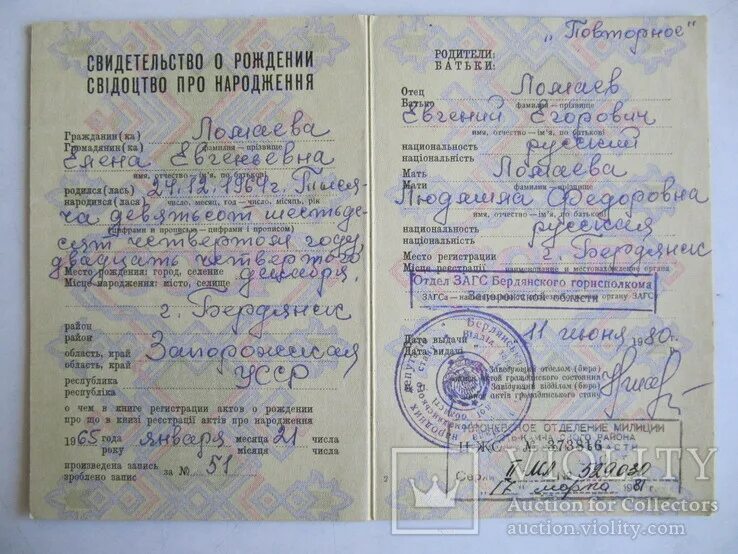 СВИДЕТЕЛЬСТВО О РОЖДЕНИИ
СВІДОЦТВО ПРО НАРОДЖЕННЯ
Гражданин(ка) Ломаева
Громадянин(ка) фамилия — прізвище
Елена Евгеньевна
имя, отчество — ім'я, по батькові
родился(лась) 24.12.1964г. Тыся-
народився(лась) число, месяц, год — число, місяць, рік
ча девятьсот шестьде-
(цифрами и прописью — цифрами і прописом)
сят четвертого году
двадцать четвертого
Место рождения: город, селение декабря
Місце народження: місто, селище
г. Бердянск
район
район
область, край Запорожская
область, край
республика УССР
республіка
о чем в книге регистрации актов о рождении
про що в книзі реєстрації актів про народження
1965 года января месяца 21 числа
року місяця числа
произведена запись за № 51
зроблено запис
„Повторное"
РОДИТЕЛИ:
БАТЬКИ:
Отец Ломаев
Батько фамилия — прізвище
Евгений Егорович
имя, отчество — ім'я, по батькові
национальность русский
національність
Мать Ломаева
Мати фамилия — прізвище
Людмила Федоровна
имя, отчество — ім'я, по батькові
национальность русская
національність
Место регистрации г. Бердянск
Місце реєстрації наименование и местонахождение органа
Отдел ЗАГС Бердянского горисполкома
Запорожской области
ЗАГСа органу ЗАГС
Дата выдачи 11 июня 1980 г.
Дата видачі р.
Заведующий отделом (бюро)
актов гражданского состояния
Завідуючий відділом (бюро)
актів громадянського стану
ОТДЕЛЕНИЕ МИЛИЦИИ
РАЙОНА
II ЖС № 373816
II МЯ 529030
„17" марта 1981г.
2
VIOLITY
Auction for Collectors
auction.violity.com